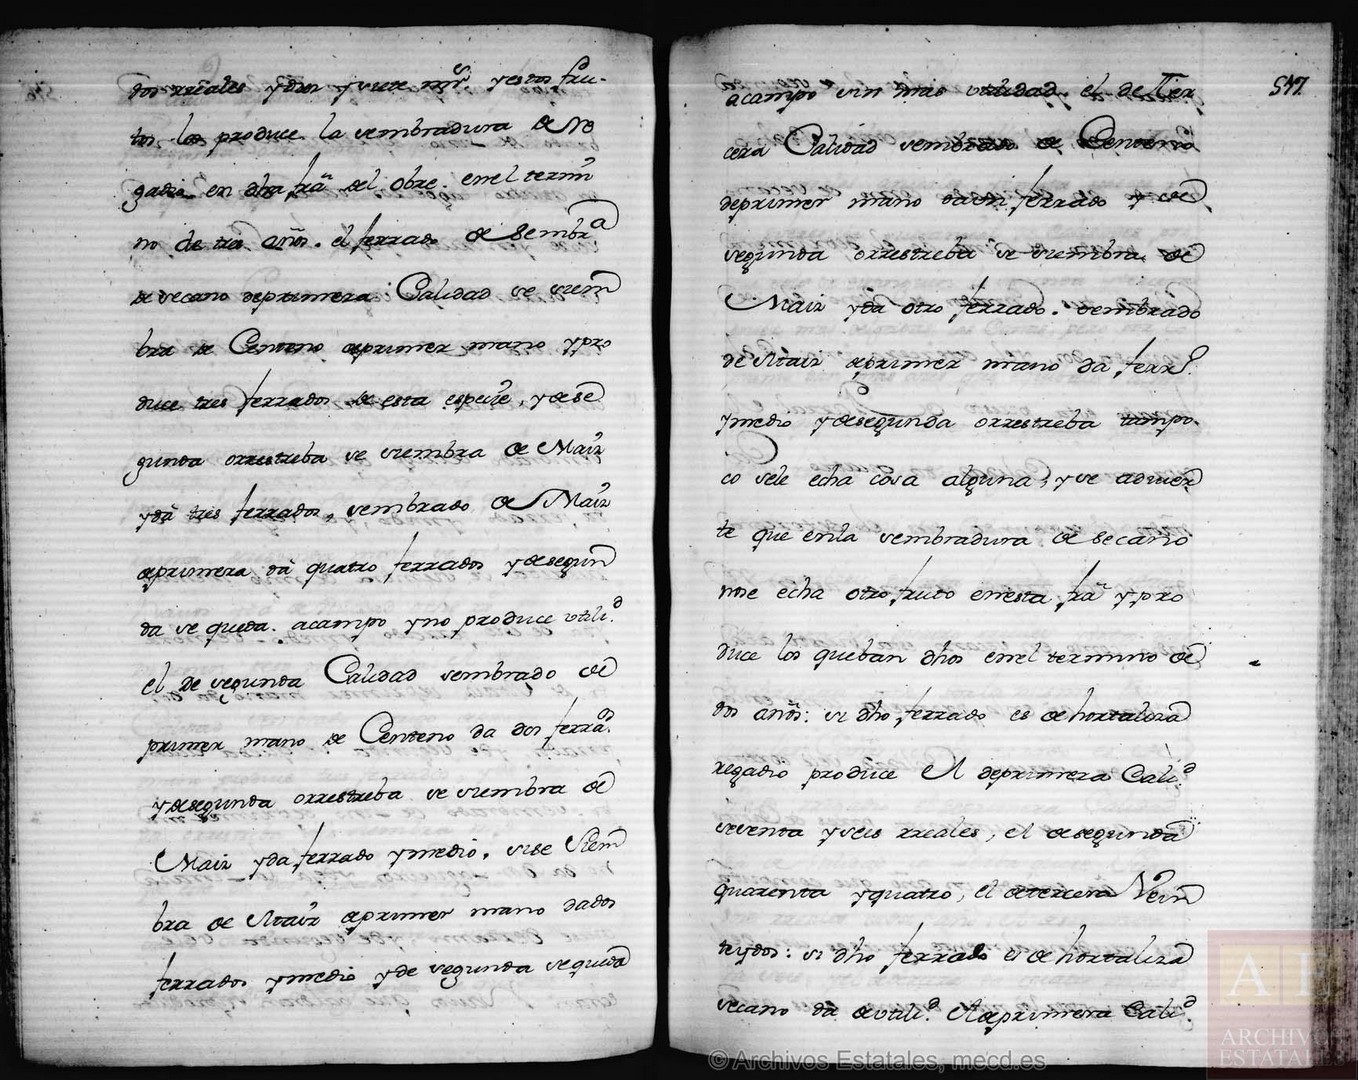 dos rreales y dos y siete mrs. y estos fru-
tos los produce la sembradura de re
gadio en dha fra del obre. en el termi
no de tres años. el ferrado de Sembra
de secano de primera Calidad se siem
bra de Centeno a primer mano y pro
duce tres ferrados de esta especie, y de se
gunda orrestreba se siembra de Maiz
y da tres ferrados, sembrado de Maiz
a primera da quatro ferrados y de segun
da se queda. acampo y no produce utilid
el de segunda Calidad sembrado de
primer mano de Centeno da dos ferrads.
y de segunda orrestreba se siembra de
Maiz y da ferrado y medio, si se Siem
bra de Maiz a primer mano da dos
ferrados y medio y de segunda se queda
547
acampo sin mas utilidad el de Ter
cera Calidad sembrado de Centeno
de primer mano da un ferrado y de
segunda orrestreba se siembra de
Maiz y da otro ferrado. sembrado
de Maiz a primer mano da ferro.
y medio y de segunda orrestreba tampo-
co se le echa cosa alguna, y se advier
te que en la sembradura de secano
no se echa otro fruto en esta fra y pro
duce los que ban dhos en el termino de
dos años: si dho ferrado es de hortaliza
regadio produce El de primera Calid.
sesenta y seis rreales, el de segunda
quarenta y quatro, el de tercera Vein
te y dos: si dho ferrado es de hortaliza
secano da de utilid. El de primera Calid
© Archivos Estatales, mecd.es
AE
ARCHIVOS
ESTATALES